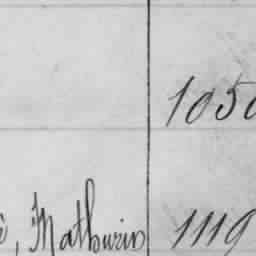 1050
é, Mathurin 1119